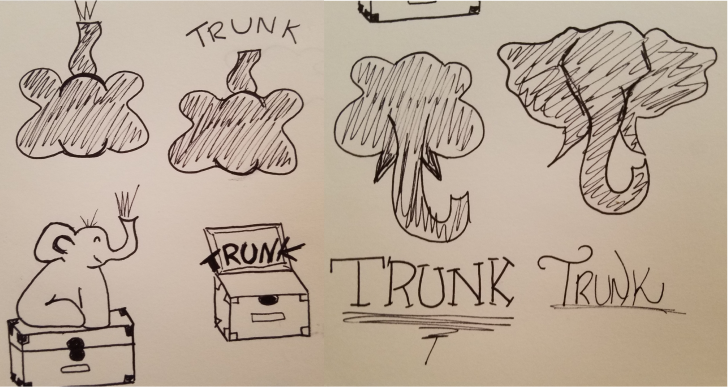 TRUNK
TRUNK
TRUNK
TRUNK
T